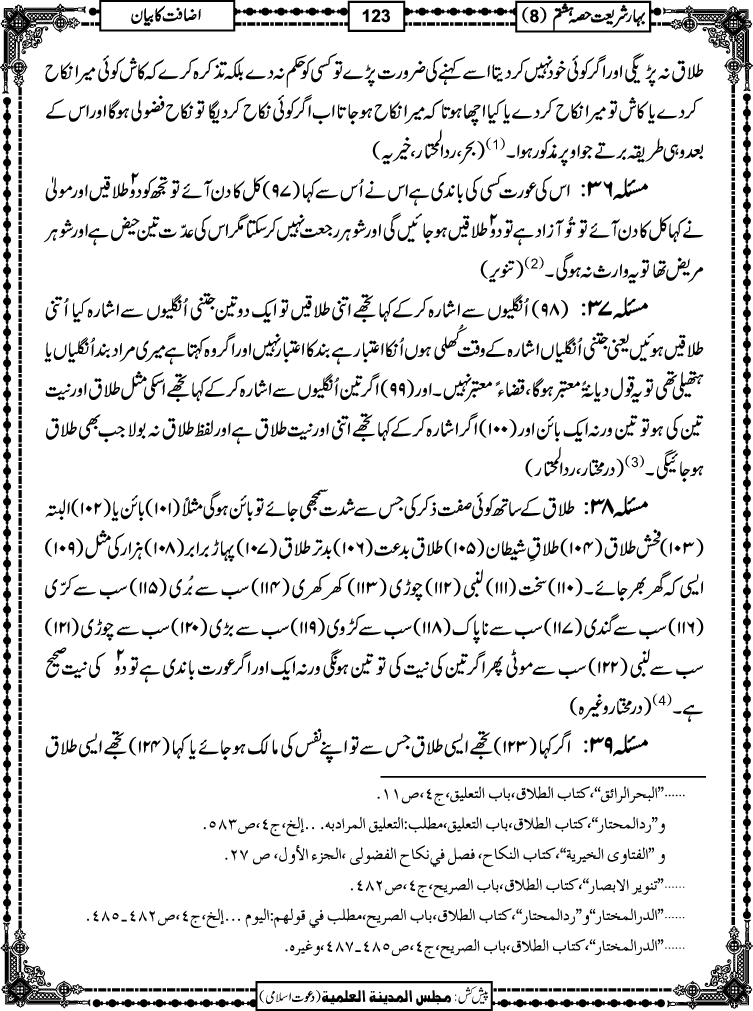 بہارِ شریعت حصہ ہشتم (8)
123
اضافت کا بیان
طلاق نہ پڑیگی اور اگر کوئی خود نہیں کردیتا اسے کہنے کی ضرورت پڑے تو کسی کو حکم نہ دے بلکہ تذکرہ کرے کہ کاش کوئی میرا نکاح
کردے یا کاش تو میرا نکاح کردے یا کیا اچھا ہوتا کہ میرا نکاح ہو جاتا اب اگر کوئی نکاح کردیگا تو نکاح فضولی ہوگا اور اس کے
بعد وہی طریقہ برتے جو اوپر مذکور ہوا۔(1) (بحر، ردالمحتار، خیریہ)
مسئلہ ۳۶: اس کی عورت کسی کی باندی ہے اس نے اُس سے کہا (۹۷) کل کا دن آئے تو تجھ کو دو۲ طلاقیں اور مولیٰ
نے کہا کل کا دن آئے تو تُو آزاد ہے تو دو۲ طلاقیں ہو جائیں گی اور شوہر رجعت نہیں کرسکتا مگر اس کی عدّت تین حیض ہے اور شوہر
مریض تھا تو یہ وارث نہ ہوگی۔(2) (تنویر)
مسئلہ ۳۷: (۹۸) اُنگلیوں سے اشارہ کرکے کہا تجھے اتنی طلاقیں تو ایک دو تین جتنی اُنگلیوں سے اشارہ کیا اُتنی
طلاقیں ہوئیں یعنی جتنی اُنگلیاں اشارہ کے وقت کُھلی ہوں اُنکا اعتبار ہے بند کا اعتبار نہیں اور اگر وہ کہتا ہے میری مراد بند اُنگلیاں یا
ہتھیلی تھی تو یہ قول دیانۃً معتبر ہوگا، قضاءً معتبر نہیں۔ اور (۹۹) اگر تین اُنگلیوں سے اشارہ کرکے کہا تجھے اسکی مثل طلاق اور نیت
تین کی ہو تو تین ورنہ ایک بائن اور (۱۰۰) اگر اشارہ کرکے کہا تجھے اتنی اور نیت طلاق ہے اور لفظ طلاق نہ بولا جب بھی طلاق
ہو جائیگی۔(3) (درمختار، ردالمحتار)
مسئلہ ۳۸: طلاق کے ساتھ کوئی صفت ذکر کی جس سے شدت سمجھی جائے تو بائن ہوگی مثلاً (۱۰۱) بائن یا (۱۰۲) البتہ
(۱۰۳) فحش طلاق (۱۰۴) طلاقِ شیطان (۱۰۵) طلاق بدعت (۱۰۶) بدتر طلاق (۱۰۷) پہاڑ برابر (۱۰۸) ہزار کی مثل (۱۰۹)
ایسی کہ گھر بھر جائے۔ (۱۱۰) سخت (۱۱۱) لنبی (۱۱۲) چوڑی (۱۱۳) کھر کھری (۱۱۴) سب سے بُری (۱۱۵) سب سے کرّی
(۱۱۶) سب سے گندی (۱۱۷) سب سے ناپاک (۱۱۸) سب سے کڑوی (۱۱۹) سب سے بڑی (۱۲۰) سب سے چوڑی (۱۲۱)
سب سے لنبی (۱۲۲) سب سے موٹی پھر اگر تین کی نیت کی تو تین ہونگی ورنہ ایک اور اگر عورت باندی ہے تو دو۲ کی نیت صحیح
ہے۔(4) (درمختار وغیرہ)
مسئلہ ۳۹: اگر کہا (۱۲۳) تجھے ایسی طلاق جس سے تو اپنے نفس کی مالک ہو جائے یا کہا (۱۲۴) تجھے ایسی طلاق
......"البحرالرائق"، کتاب الطلاق، باب التعلیق، ج٤، ص١١.
و"ردالمحتار"، کتاب الطلاق، باب التعلیق، مطلب: التعلیق المرادبہ...إلخ، ج٤، ص٥٨٣.
و"الفتاوی الخیریة"، کتاب النکاح، فصل في نکاح الفضولی، الجزء الأول، ص ٢٧.
......"تنویر الابصار"، کتاب الطلاق، باب الصریح، ج٤، ص٤٨٢.
......"الدرالمختار" و"ردالمحتار"، کتاب الطلاق، باب الصریح، مطلب في قولھم: الیوم...إلخ، ج٤، ص٤٨٢ـ٤٨٥.
......"الدرالمختار"، کتاب الطلاق، باب الصریح، ج٤، ص٤٨٥ـ٤٨٧، وغیرہ.
پیش کش: مجلس المدينة العلمية (دعوت اسلامی)